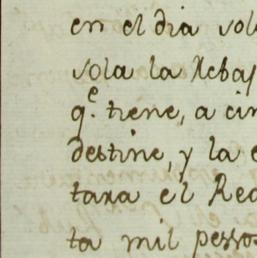 en el dia sol
sola la Rebaj
q.e tiene, a cin
destine, y la e
taxa el Rea
ta mil pessos